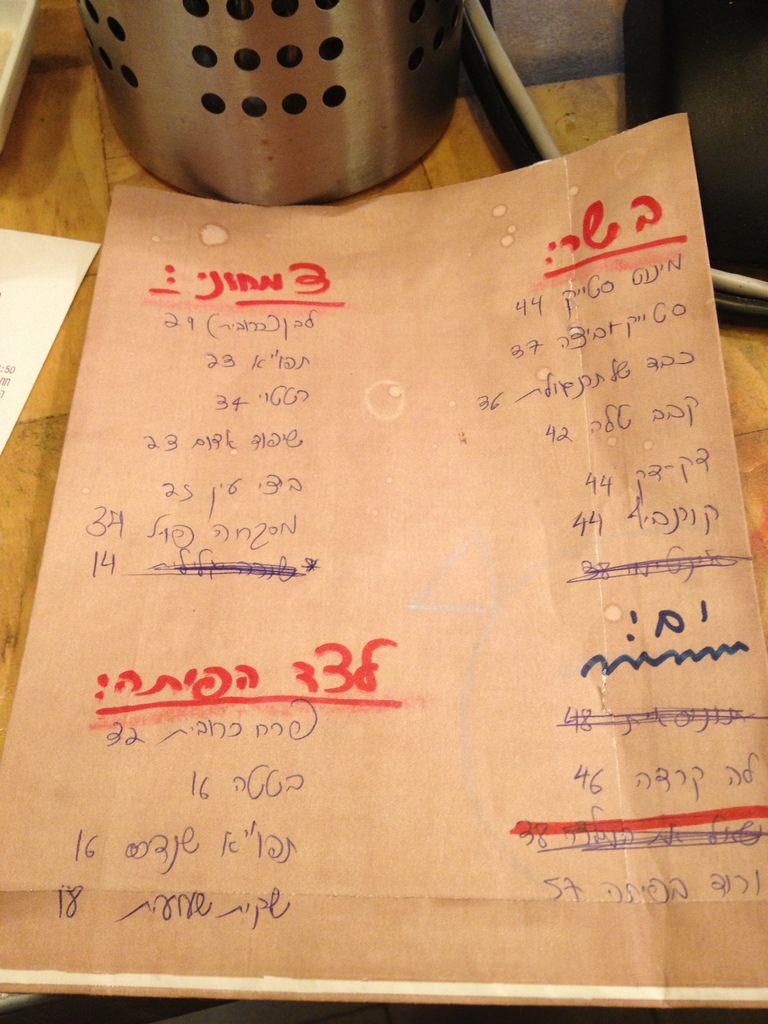 בשרי:
מינוט סטייק 44
סטייק אביצה 37
כבד של תרנגולת 36
קבב טלה 42
דק-דק 44
קורנביף 44
38
ים:
48
לה קרדה 46
38
ורוד בפיתה 57
צמחוני:-
לבן (כרובית) 29
תפו"א 23
רטטוי 34
שיפוד אדום 23
ביצי עין 25
מסבחה פויל 34
* 14
לצד הפיתה:
פרח כרובית 32
בטטה 16
תפו"א שנדרס 16
שקית שעועית 18
:50